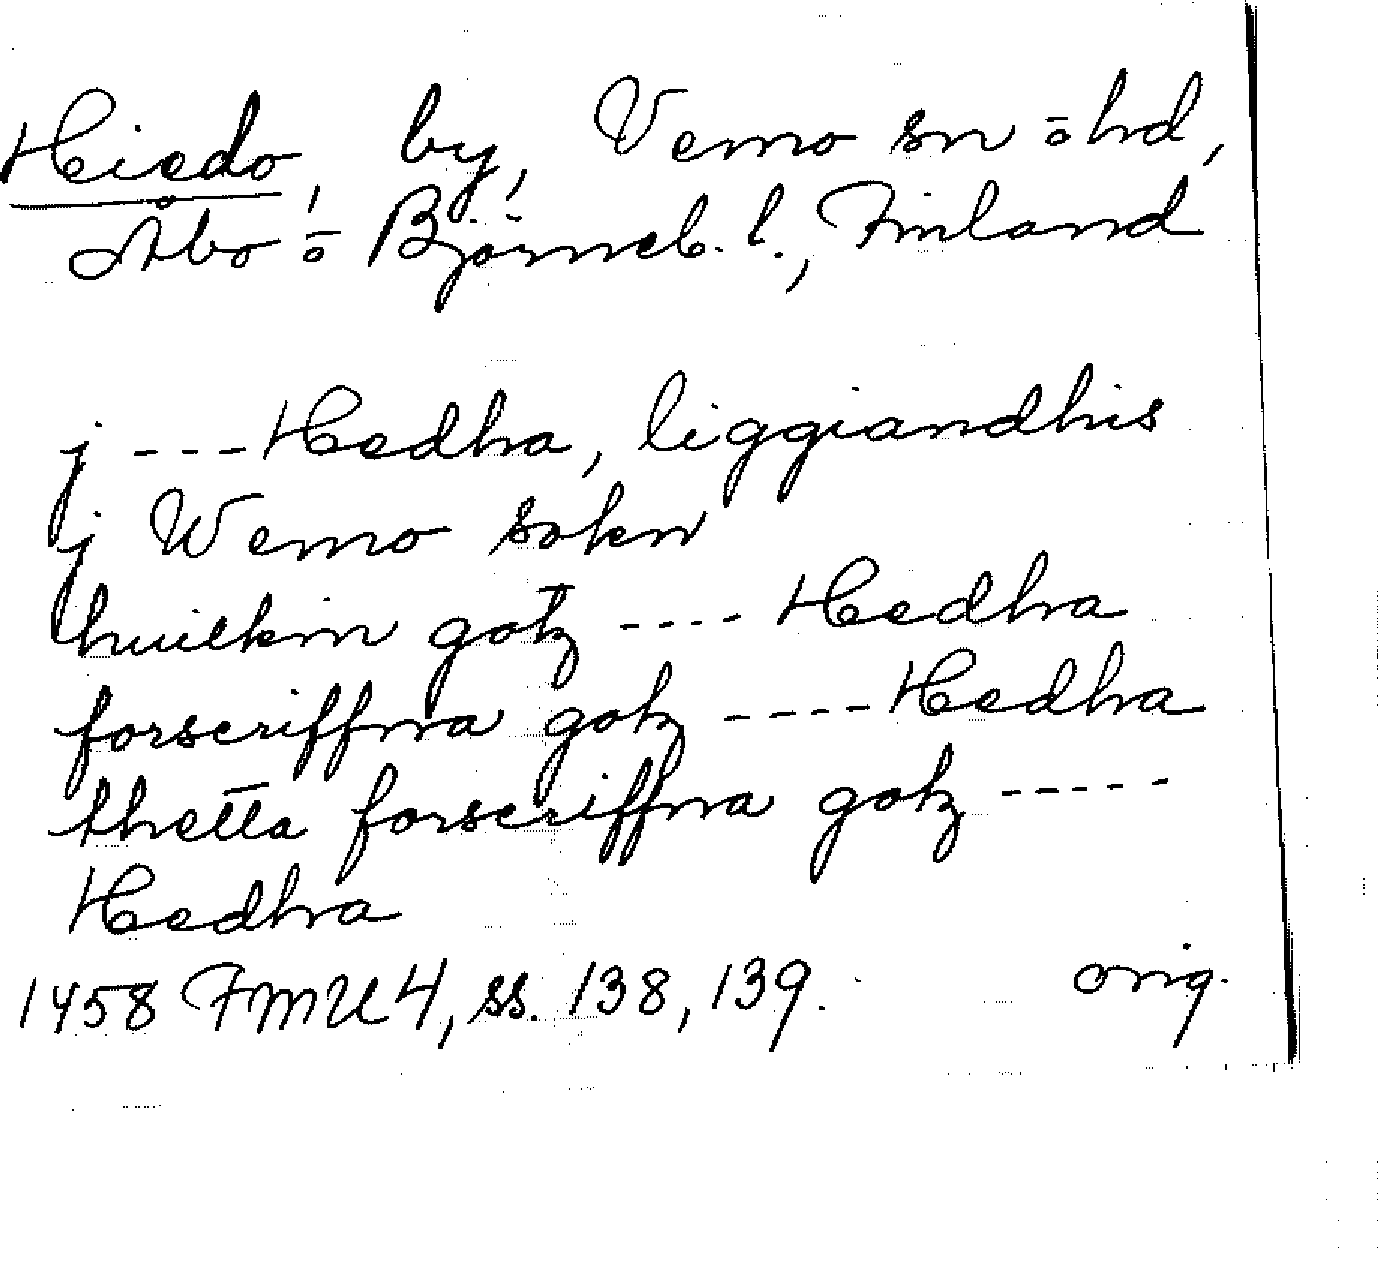 Hiedo, by, Vemo sn o hd,
Åbo o Björneb. l., Finland
j --- Hedha, liggiandhis
j Wemo sokn
huilkin gotz ---- Hedha
forscriffna gotz ----- Hedha
thetta forscriffna gotz -----
Hedha
1458 FMU 4, ss. 138, 139. orig.